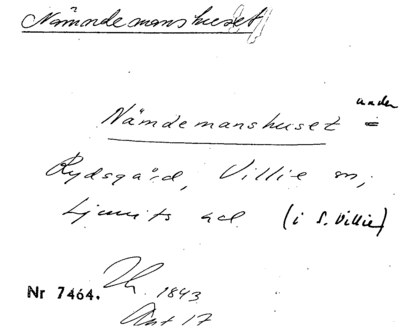 Nämndemanshuset
Nämdemanshuset = under
Rydsgård, Villie sn,
Ljunits hd (i S. Villie)
Nr 7464. 1843
Ant 17